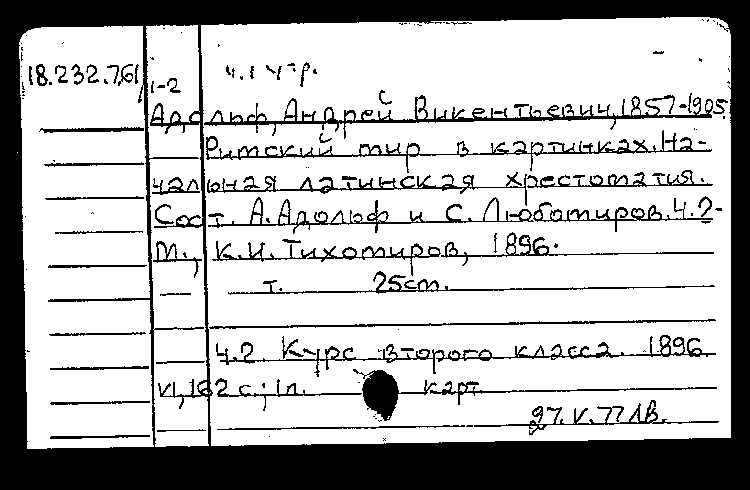 ч.1 утр.
18.232.761/1-2
Адольф, Андрей Викентьевич, 1857-1905
Римский мир в картинках. На-
чальная латинская хрестоматия.
Сост. А. Адольф и С. Любомиров. Ч.2-
М., К.И. Тихомиров, 1896.
т. 25см.
Ч.2. Курс второго класса. 1896
VI, 162 с.; 1 л. карт.
27.V.77 ЛВ.